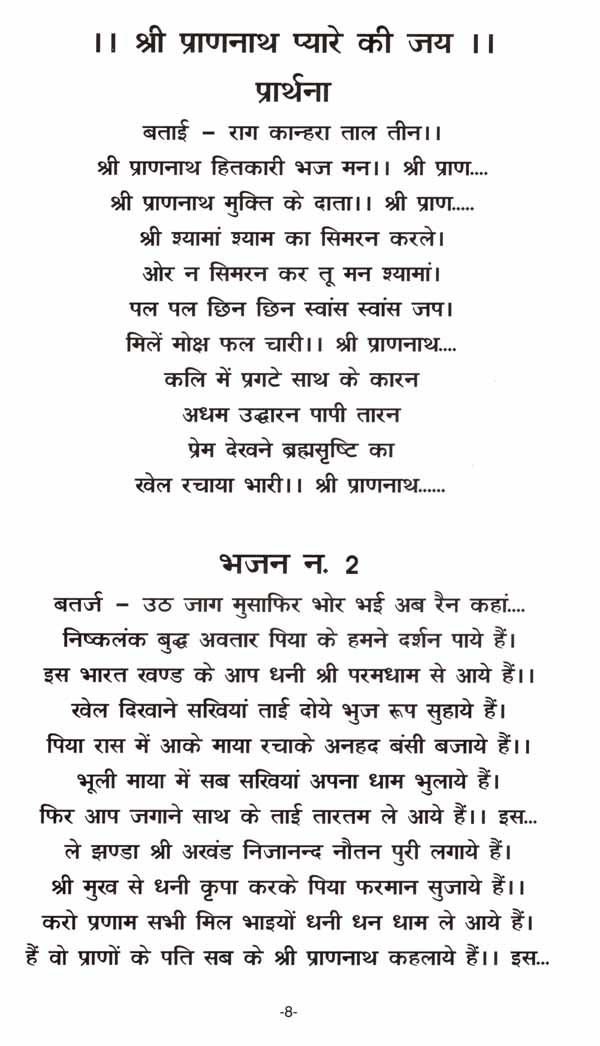 ।। श्री प्राणनाथ प्यारे की जय ।।
प्रार्थना
बताई – राग कान्हरा ताल तीन।।
श्री प्राणनाथ हितकारी भज मन।। श्री प्राण....
श्री प्राणनाथ मुक्ति के दाता।। श्री प्राण.....
श्री श्यामां श्याम का सिमरन करले।
ओर न सिमरन कर तू मन श्यामां।
पल पल छिन छिन स्वांस स्वांस जप।
मिलें मोक्ष फल चारी।। श्री प्राणनाथ....
कलि में प्रगटे साथ के कारन
अधम उद्धारन पापी तारन
प्रेम देखने ब्रह्मसृष्टि का
खेल रचाया भारी।। श्री प्राणनाथ......
भजन न. 2
बतर्ज – उठ जाग मुसाफिर भोर भई अब रैन कहां....
निष्कलंक बुद्ध अवतार पिया के हमने दर्शन पाये हैं।
इस भारत खण्ड के आप धनी श्री परमधाम से आये हैं।।
खेल दिखाने सखियां ताई दोये भुज रूप सुहाये हैं।
पिया रास में आके माया रचाके अनहद बंसी बजाये हैं।।
भूली माया में सब सखियां अपना धाम भुलाये हैं।
फिर आप जगाने साथ के ताई तारतम ले आये हैं।। इस...
ले झण्डा श्री अखंड निजानन्द नौतन पुरी लगाये हैं।
श्री मुख से धनी कृपा करके पिया फरमान सुजाये हैं।।
करो प्रणाम सभी मिल भाइयों धनी धन धाम ले आये हैं।
हैं वो प्राणों के पति सब के श्री प्राणनाथ कहलाये हैं।। इस...
-8-